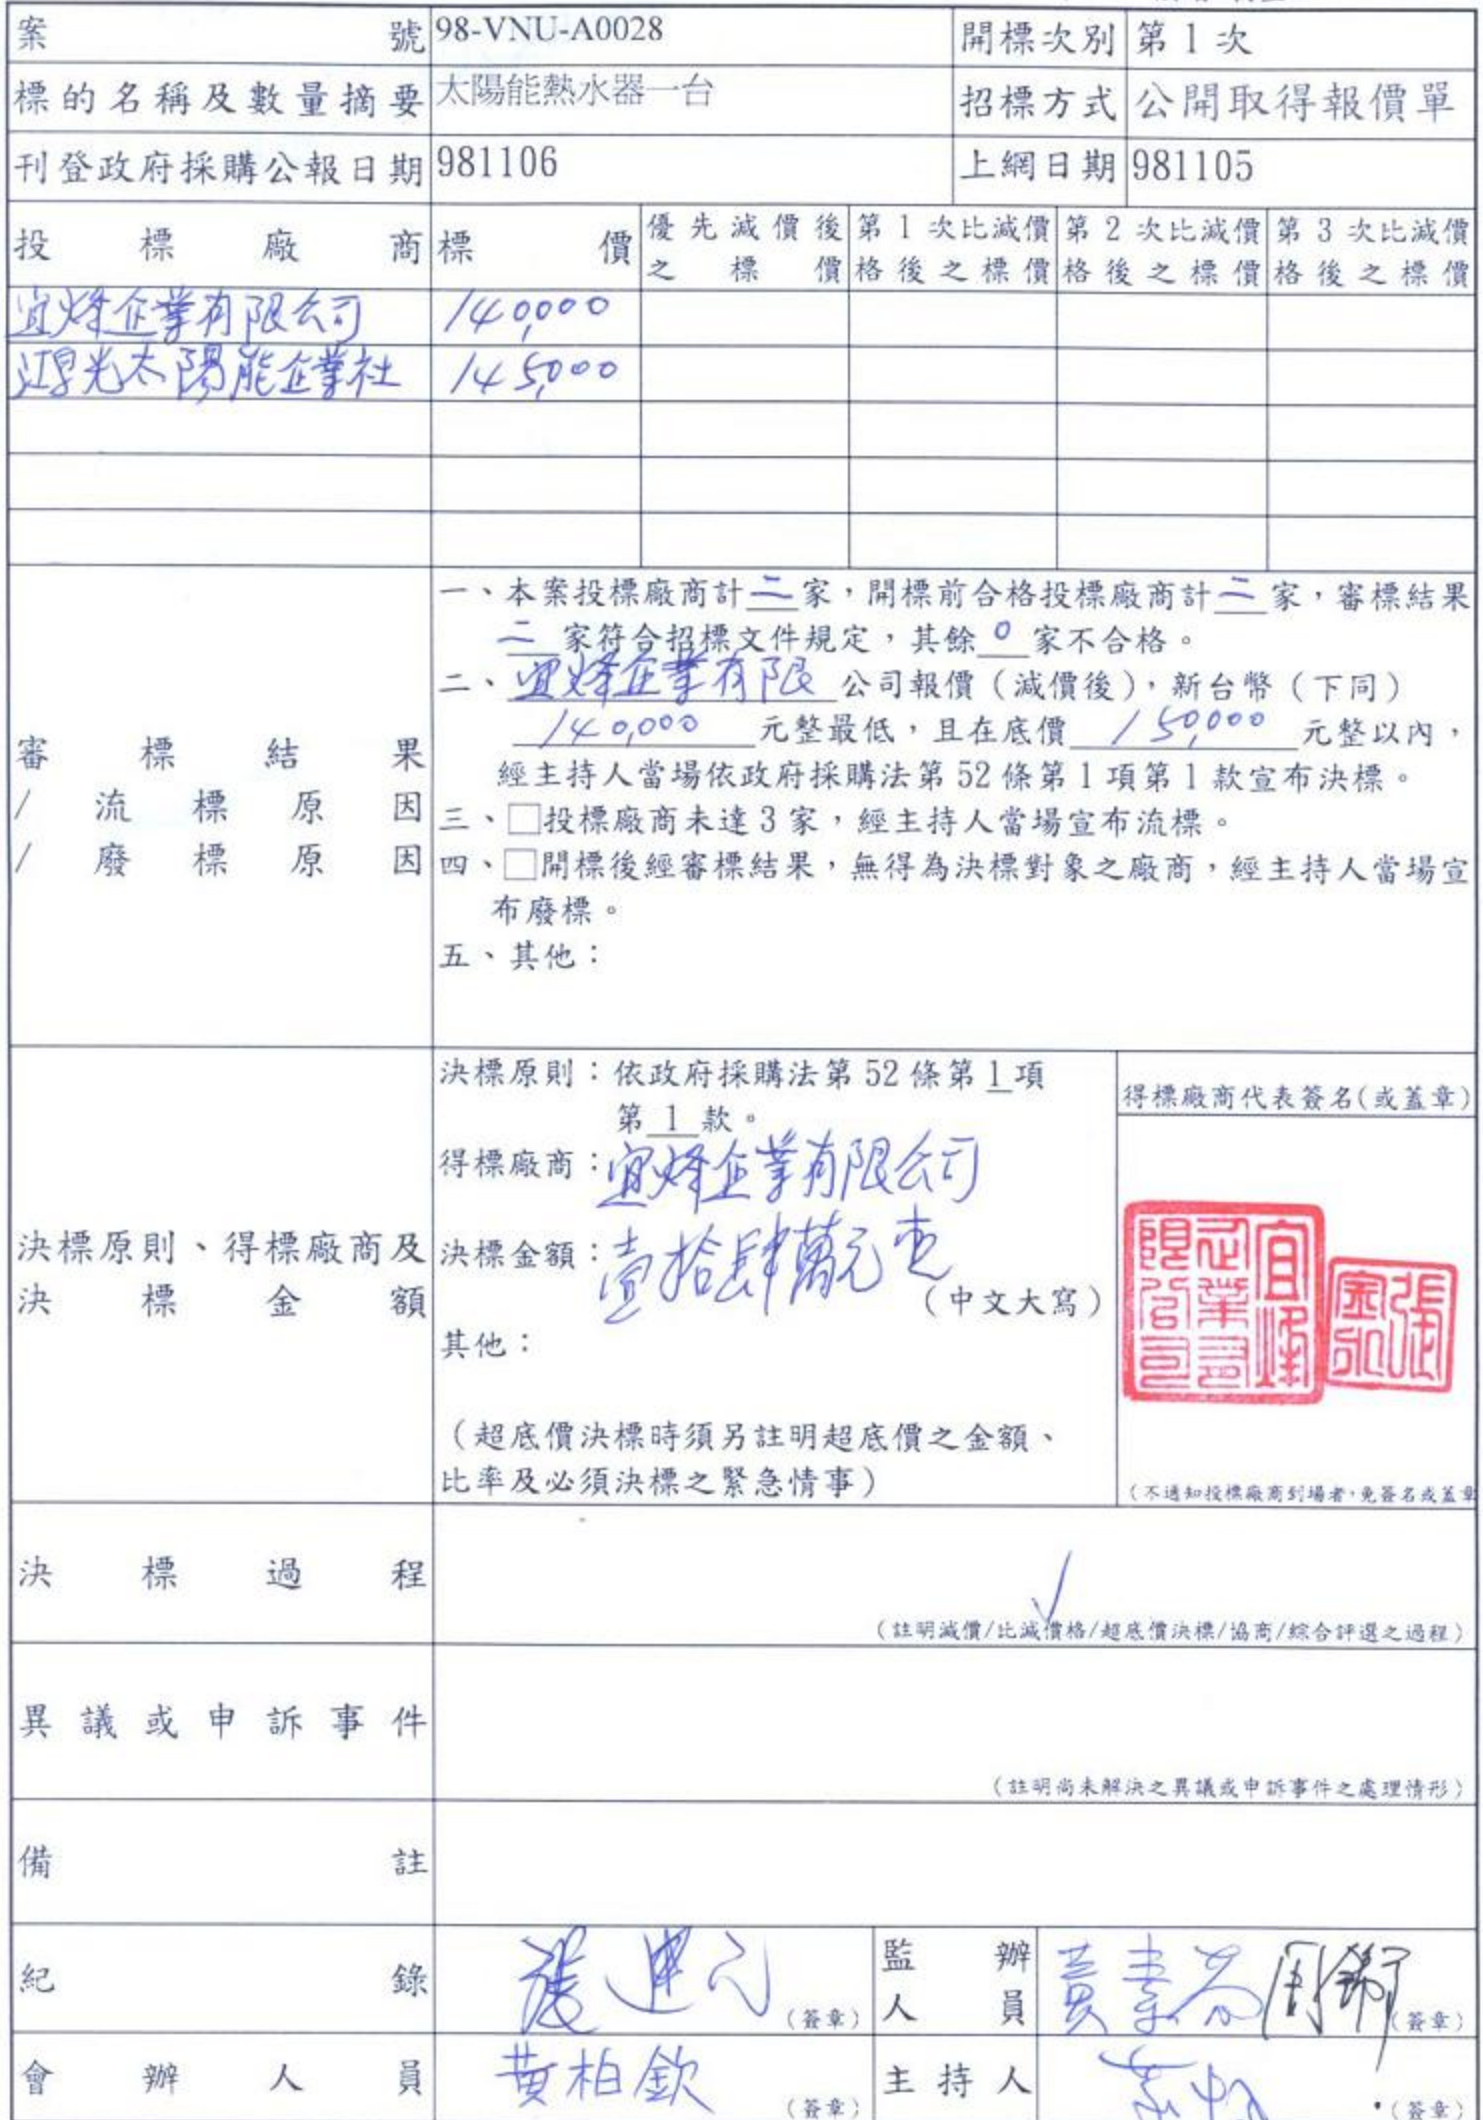 案號 98-VNU-A0028 開標次別 第 1 次
標的名稱及數量摘要 太陽能熱水器一台 招標方式 公開取得報價單
刊登政府採購公報日期 981106 上網日期 981105
投標廠商 標價 優先減價後之標價 第 1 次比減價格後之標價 第 2 次比減價格後之標價 第 3 次比減價格後之標價
宜烽企業有限公司 140,000
光太陽能企業社 145,000
審標結果
/流標原因
/廢標原因
一、本案投標廠商計二家，開標前合格投標廠商計二家，審標結果
二家符合招標文件規定，其餘0家不合格。
二、宜烽企業有限公司報價（減價後），新台幣（下同）
140,000元整最低，且在底價150,000元整以內，
經主持人當場依政府採購法第 52 條第 1 項第 1 款宣布決標。
三、□投標廠商未達 3 家，經主持人當場宣布流標。
四、□開標後經審標結果，無得為決標對象之廠商，經主持人當場宣
布廢標。
五、其他：
決標原則、得標廠商及
決標金額
決標原則：依政府採購法第 52 條第 1 項
第 1 款。
得標廠商：宜烽企業有限公司
決標金額：壹拾肆萬元
（中文大寫）
其他：
（超底價決標時須另註明超底價之金額、
比率及必須決標之緊急情事）
得標廠商代表簽名(或蓋章)
宜烽企業有限公司
張
（不通知投標廠商到場者，免簽名或蓋章
決標過程
（註明減價/比減價格/超底價決標/協商/綜合評選之過程）
異議或申訴事件
（註明尚未解決之異議或申訴事件之處理情形）
備註
紀錄 （簽章） 監辦人員 黃素 （簽章）
會辦人員 黃柏欽 （簽章） 主持人 （簽章）